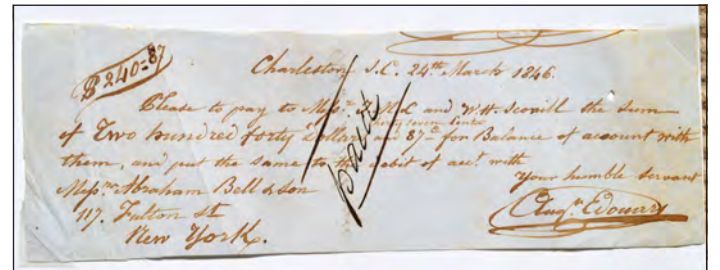 $240=87
Charleston S.C. 24th March 1846.
Please to pay to Messrs M.L and W.H. Scovill the sum
of Two hundred forty Dollars 87c for Balance of account with
them, and put the same to the debit of acct. with
your humble Servant
Messrs Abraham Bell & Son
117. Fulton St
New York.
Augn. Edouart
paid